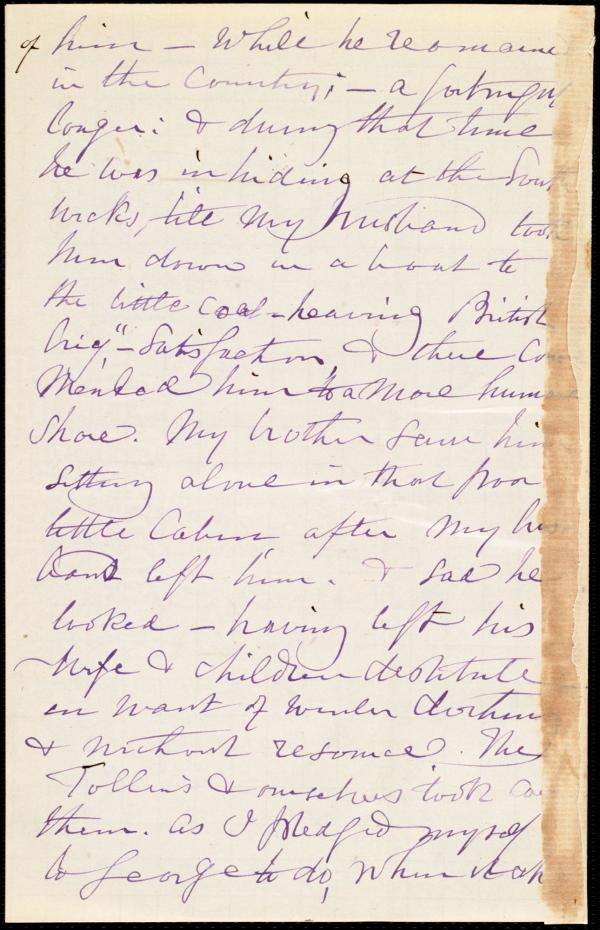 of him – while he remaine
in the Country; – a fortnight
longer: & during that time
he was in hiding at the Sout
wicks, till my husband took
him down in a boat to
the little coal-heaving British
brig "– Satisfaction & there Com
mended him to a more humane
Shore. My brother saw him
sitting alone in that poor
little Cabin after my hus
band left him. & sad he
looked – having left his
Wife & children destitute
in want of winter clothing
& without resource. The
Tollens & ourselves took ca
them. as I pledged myself
to George to do, when